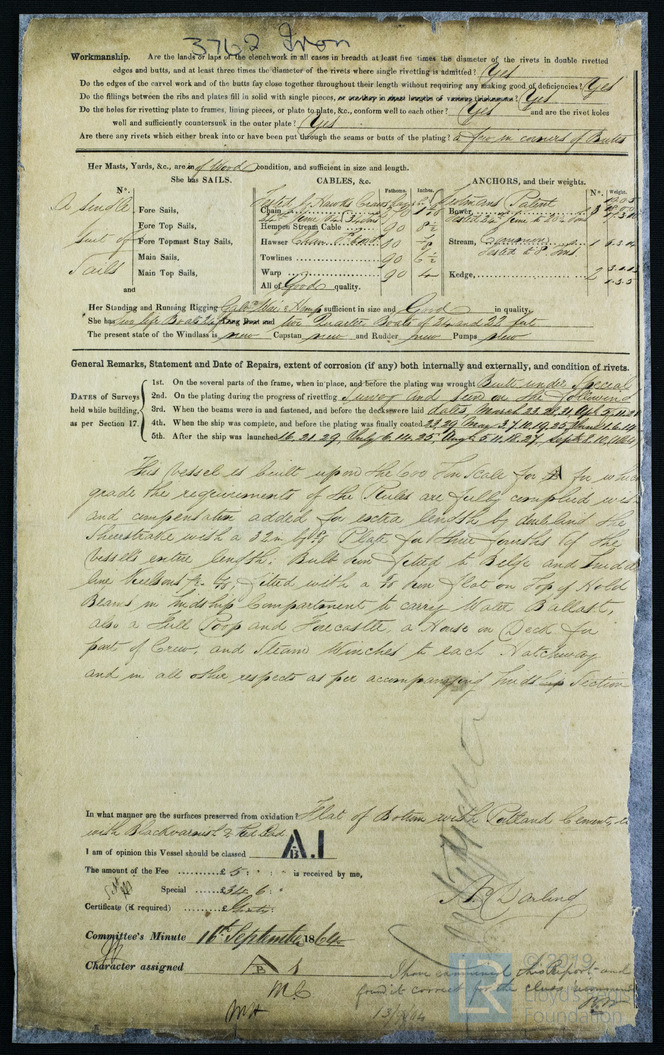 3762 Iron
Workmanship. Are the lands or laps of the clenchwork in all cases in breadth at least five times the diameter of the rivets in double rivetted
edges and butts, and at least three times the diameter of the rivets where single rivetting is admitted? Yes
Do the edges of the carvel work and of the butts fay close together throughout their length without requiring any making good of deficiencies? Yes
Do the fillings between the ribs and plates fill in solid with single pieces, Yes
Do the holes for rivetting plate to frames, lining pieces, or plate to plate, &c., conform well to each other? Yes and are the rivet holes
well and sufficiently countersunk in the outer plate? Yes
Are there any rivets which either break into or have been put through the seams or butts of the plating? a few in corners of Butts
Her Masts, Yards, &c., are in of Wood condition, and sufficient in size and length.
She has SAILS. CABLES, &c. ANCHORS, and their weights.
N°. Fathoms. Inches. N°. Weight.
A single
suit of
Sails
Fore Sails,
Fore Top Sails,
Fore Topmast Stay Sails,
Main Sails,
Main Top Sails,
and
Chain
Hempen Stream Cable 90 8½
Hawser 90
Towlines 90 6½
Warp 90 4
All of Good quality.
Bower, 3
Stream, 1
Kedge, 2
Her Standing and Running Rigging Galvd Wire & Hemp sufficient in size and Good in quality.
She has two life Boats and two Quarter Boats of 24 and 22 feet
The present state of the Windlass is new Capstan new and Rudder new Pumps New
General Remarks, Statement and Date of Repairs, extent of corrosion (if any) both internally and externally, and condition of rivets.
DATES of Surveys
held while building,
as per Section 17.
1st. On the several parts of the frame, when in place, and before the plating was wrought Built under Special
2nd. On the plating during the progress of rivetting Survey and seen on the following
3rd. When the beams were in and fastened, and before the decks were laid dates, March 22.
4th. When the ship was complete, and before the plating was finally coated May
5th. After the ship was launched 16. 21. 29, July 6. 14. 25. Augt 5. 11. 18. 27, Septr 8. 10, 1864
This Vessel is built upon the 600 Ton Scale for A for which
grade the requirements of the Rules are fully complied with
and compensation added for extra length by doubling the
Sheerstrake with a Plate for three fourths of the
Vessels entire length. Bulb iron fitted to Bilge and midd
line Keelsons fitted with a iron flat on Top of Hold
Beams in midship Compartment to carry Water Ballast,
also a Full Poop and Forecastle, a House on Deck for
part of Crew, and Steam Winches to each Hatchway
and in all other respects as per accompanying Midship Section
In what manner are the surfaces preserved from oxidation? Flat of Bottom with Portland Cement,
with Blackvarnish & Red Lead
I am of opinion this Vessel should be classed A.1
B
The amount of the Fee £5 : : is received by me,
Special £34. 6 :
Certificate (if required)
A Darling
Committee's Minute 16th September 1864
Character assigned A 1
B
I have examined this Report and
find it correct for the class recommended
MC
MH
© 2019
LR
Lloyd's Register
Foundation